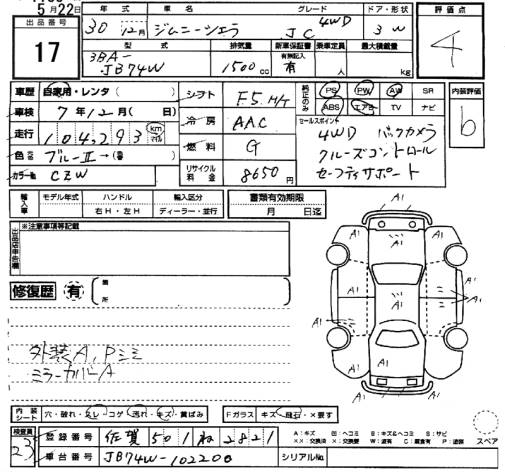 5月22日
出品番号
17
年式 車名 グレード ドア・形状
30年12月 ジムニーシエラ 4WD JC 3W
型式 排気量 新車保証書 乗車定員 最大積載量
3BA-JB74W 1500cc 有無記入 有 人 kg
評価点
4
車歴 自家用・レンタ( )
車検 7年12月( 日)
走行 104,293 km マイル
色 ブルーⅡ→(
カラー№ CZW
シフト F5 M/T
冷房 AAC
燃料 G
リサイクル料金 8650円
純正のみ PS PW AW SR
ABS エアB TV ナビ
セールスポイント
4WD バックカメラ
クルーズコントロール
セーフティサポート
内装評価
b
輸入車 モデル年式 ハンドル 輸入区分
右H・左H ディーラー・並行
書類有効期限
月 日迄
※注意事項等記載
修復歴 有 箇所
外装A,Pミミ
ミラーカバーA
A1 A1 A1 A1
A1 A1
A1 A1
A1 A1
A1
内装シート 穴・破れ・スレ・コゲ・汚れ・キズ・黄ばみ
Fガラス キズ・飛石・×要す
スペア
A:キズ
XX:交換済 X:交換要 W:波有 C:腐食有 P:塗装
検査員
23
登録番号 佐賀501ね2821
車台番号 JB74W-102200
シリアル№